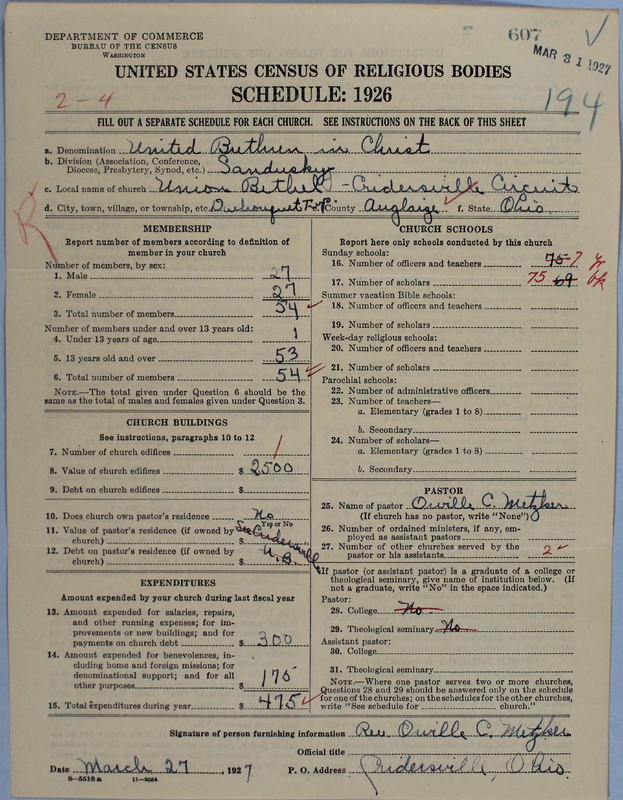 DEPARTMENT OF COMMERCE
BUREAU OF THE CENSUS
WASHINGTON
607
MAR 31 1927
UNITED STATES CENSUS OF RELIGIOUS BODIES
SCHEDULE: 1926
2-4
194
FILL OUT A SEPARATE SCHEDULE FOR EACH CHURCH. SEE INSTRUCTIONS ON THE BACK OF THIS SHEET
a. Denomination United Brethren in Christ
b. Division (Association, Conference, Diocese, Presbytery, Synod, etc.) Sandusky
c. Local name of church Union Bethel - Cridersville Circuit
d. City, town, village, or township, etc. Duchouquet Twp. County Auglaize f. State Ohio
R
MEMBERSHIP
Report number of members according to definition of
member in your church
Number of members, by sex:
1. Male 27
2. Female 27
3. Total number of members 54
Number of members under and over 13 years old:
4. Under 13 years of age 1
5. 13 years old and over 53
6. Total number of members 54
NOTE.—The total given under Question 6 should be
same as the total of males and females given under Question 3.
CHURCH BUILDINGS
See instructions, paragraphs 10 to 12
7. Number of church edifices 1
8. Value of church edifices $ 2500
9. Debt on church edifices $
10. Does church own pastor's residence No
Yes or No
11. Value of pastor's residence (if owned by
church) $ See Cridersville
12. Debt on pastor's residence (if owned by
church) $ U.B.
EXPENDITURES
Amount expended by your church during last fiscal year
13. Amount expended for salaries, repairs,
and other running expenses; for im-
provements or new buildings; and for
payments on church debt $ 300
14. Amount expended for benevolences, in-
cluding home and foreign missions; for
denominational support; and for all
other purposes $ 175
15. Total expenditures during year $ 475
CHURCH SCHOOLS
Report here only schools conducted by this church
Sunday schools:
16. Number of officers and teachers 75 7
17. Number of scholars 75 69
Summer vacation Bible schools:
18. Number of officers and teachers
19. Number of scholars
Week-day religious schools:
20. Number of officers and teachers
21. Number of scholars
Parochial schools:
22. Number of administrative officers
23. Number of teachers—
a. Elementary (grades 1 to 8)
b. Secondary
24. Number of scholars—
a. Elementary (grades 1 to 8)
b. Secondary
PASTOR
25. Name of pastor Orville C. Metzker
(If church has no pastor, write "None")
26. Number of ordained ministers, if any, em-
ployed as assistant pastors
27. Number of other churches served by the
pastor or his assistants 2
If pastor (or assistant pastor) is a graduate of a college or
theological seminary, give name of institution below. (If
not a graduate, write "No" in the space indicated.)
Pastor:
28. College No
29. Theological seminary No
Assistant pastor:
30. College
31. Theological seminary
NOTE.—Where one pastor serves two or more churches,
Questions 28 and 29 should be answered only on the schedule
for one of the churches; on the schedules for the other churches,
write "See schedule for church."
Signature of person furnishing information Rev. Orville C. Metzker
Official title
Date March 27, 1927 P. O. Address Cridersville, Ohio.
8—5518 a 11—9054